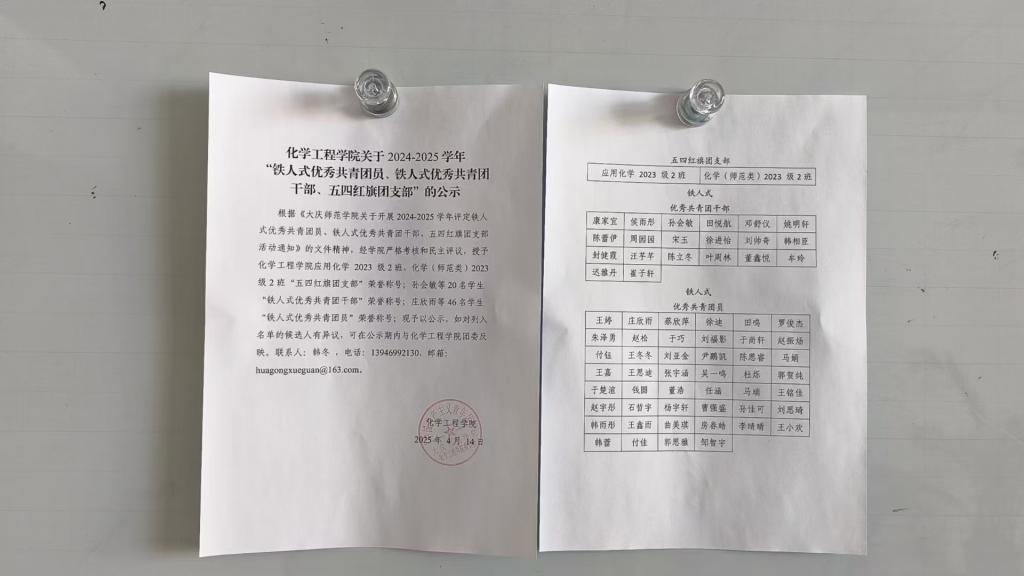 化学工程学院关于 2024-2025 学年
“铁人式优秀共青团员、铁人式优秀共青团
干部、五四红旗团支部”的公示
根据《大庆师范学院关于开展 2024-2025 学年评定铁人
式优秀共青团员、铁人式优秀共青团干部、五四红旗团支部
活动通知》的文件精神，经学院严格考核和民主评议，授予
化学工程学院应用化学 2023 级 2 班、化学（师范类）2023
级 2 班“五四红旗团支部”荣誉称号；孙会敏等 20 名学生
“铁人式优秀共青团干部”荣誉称号；庄欣雨等 46 名学生
“铁人式优秀共青团员”荣誉称号；现予以公示，如对列入
名单的候选人有异议，可在公示期内与化学工程学院团委反
映。联系人：韩冬，电话：13946992130，邮箱：
huagongxueguan@163.com。
化学工程学院
2025 年 4 月 14 日
五四红旗团支部
应用化学 2023 级 2 班 化学（师范类）2023 级 2 班
铁人式
优秀共青团干部
康家宜 侯雨彤 孙会敏 田悦航 邓舒仪 姚明轩
陈蕾伊 周园园 宋玉 徐进怡 刘帅奇 韩相臣
封健霞 汪芊芊 陈立冬 叶周林 董鑫悦 牟玲
迟雅丹 崔子轩
铁人式
优秀共青团员
王婷 庄欣雨 蔡欣萍 徐迪 田鸣 罗俊杰
朱泽勇 赵检 于巧 刘福影 于尚轩 赵振炀
付钰 王冬冬 刘亚金 尹鹏凯 陈思睿 马婧
王嘉 王思迪 张宇涵 吴一鸣 杜烁 郭贺纯
于楚渲 钱圆 董浩 任涵 马瑞 王铭佳
赵宇彤 石哲宇 杨宇轩 曹强盛 孙佳可 刘思琦
韩雨彤 王鑫雨 曲美琪 房春皓 李晴晴 王小欢
韩蕾 付佳 郭思雅 邹智宇